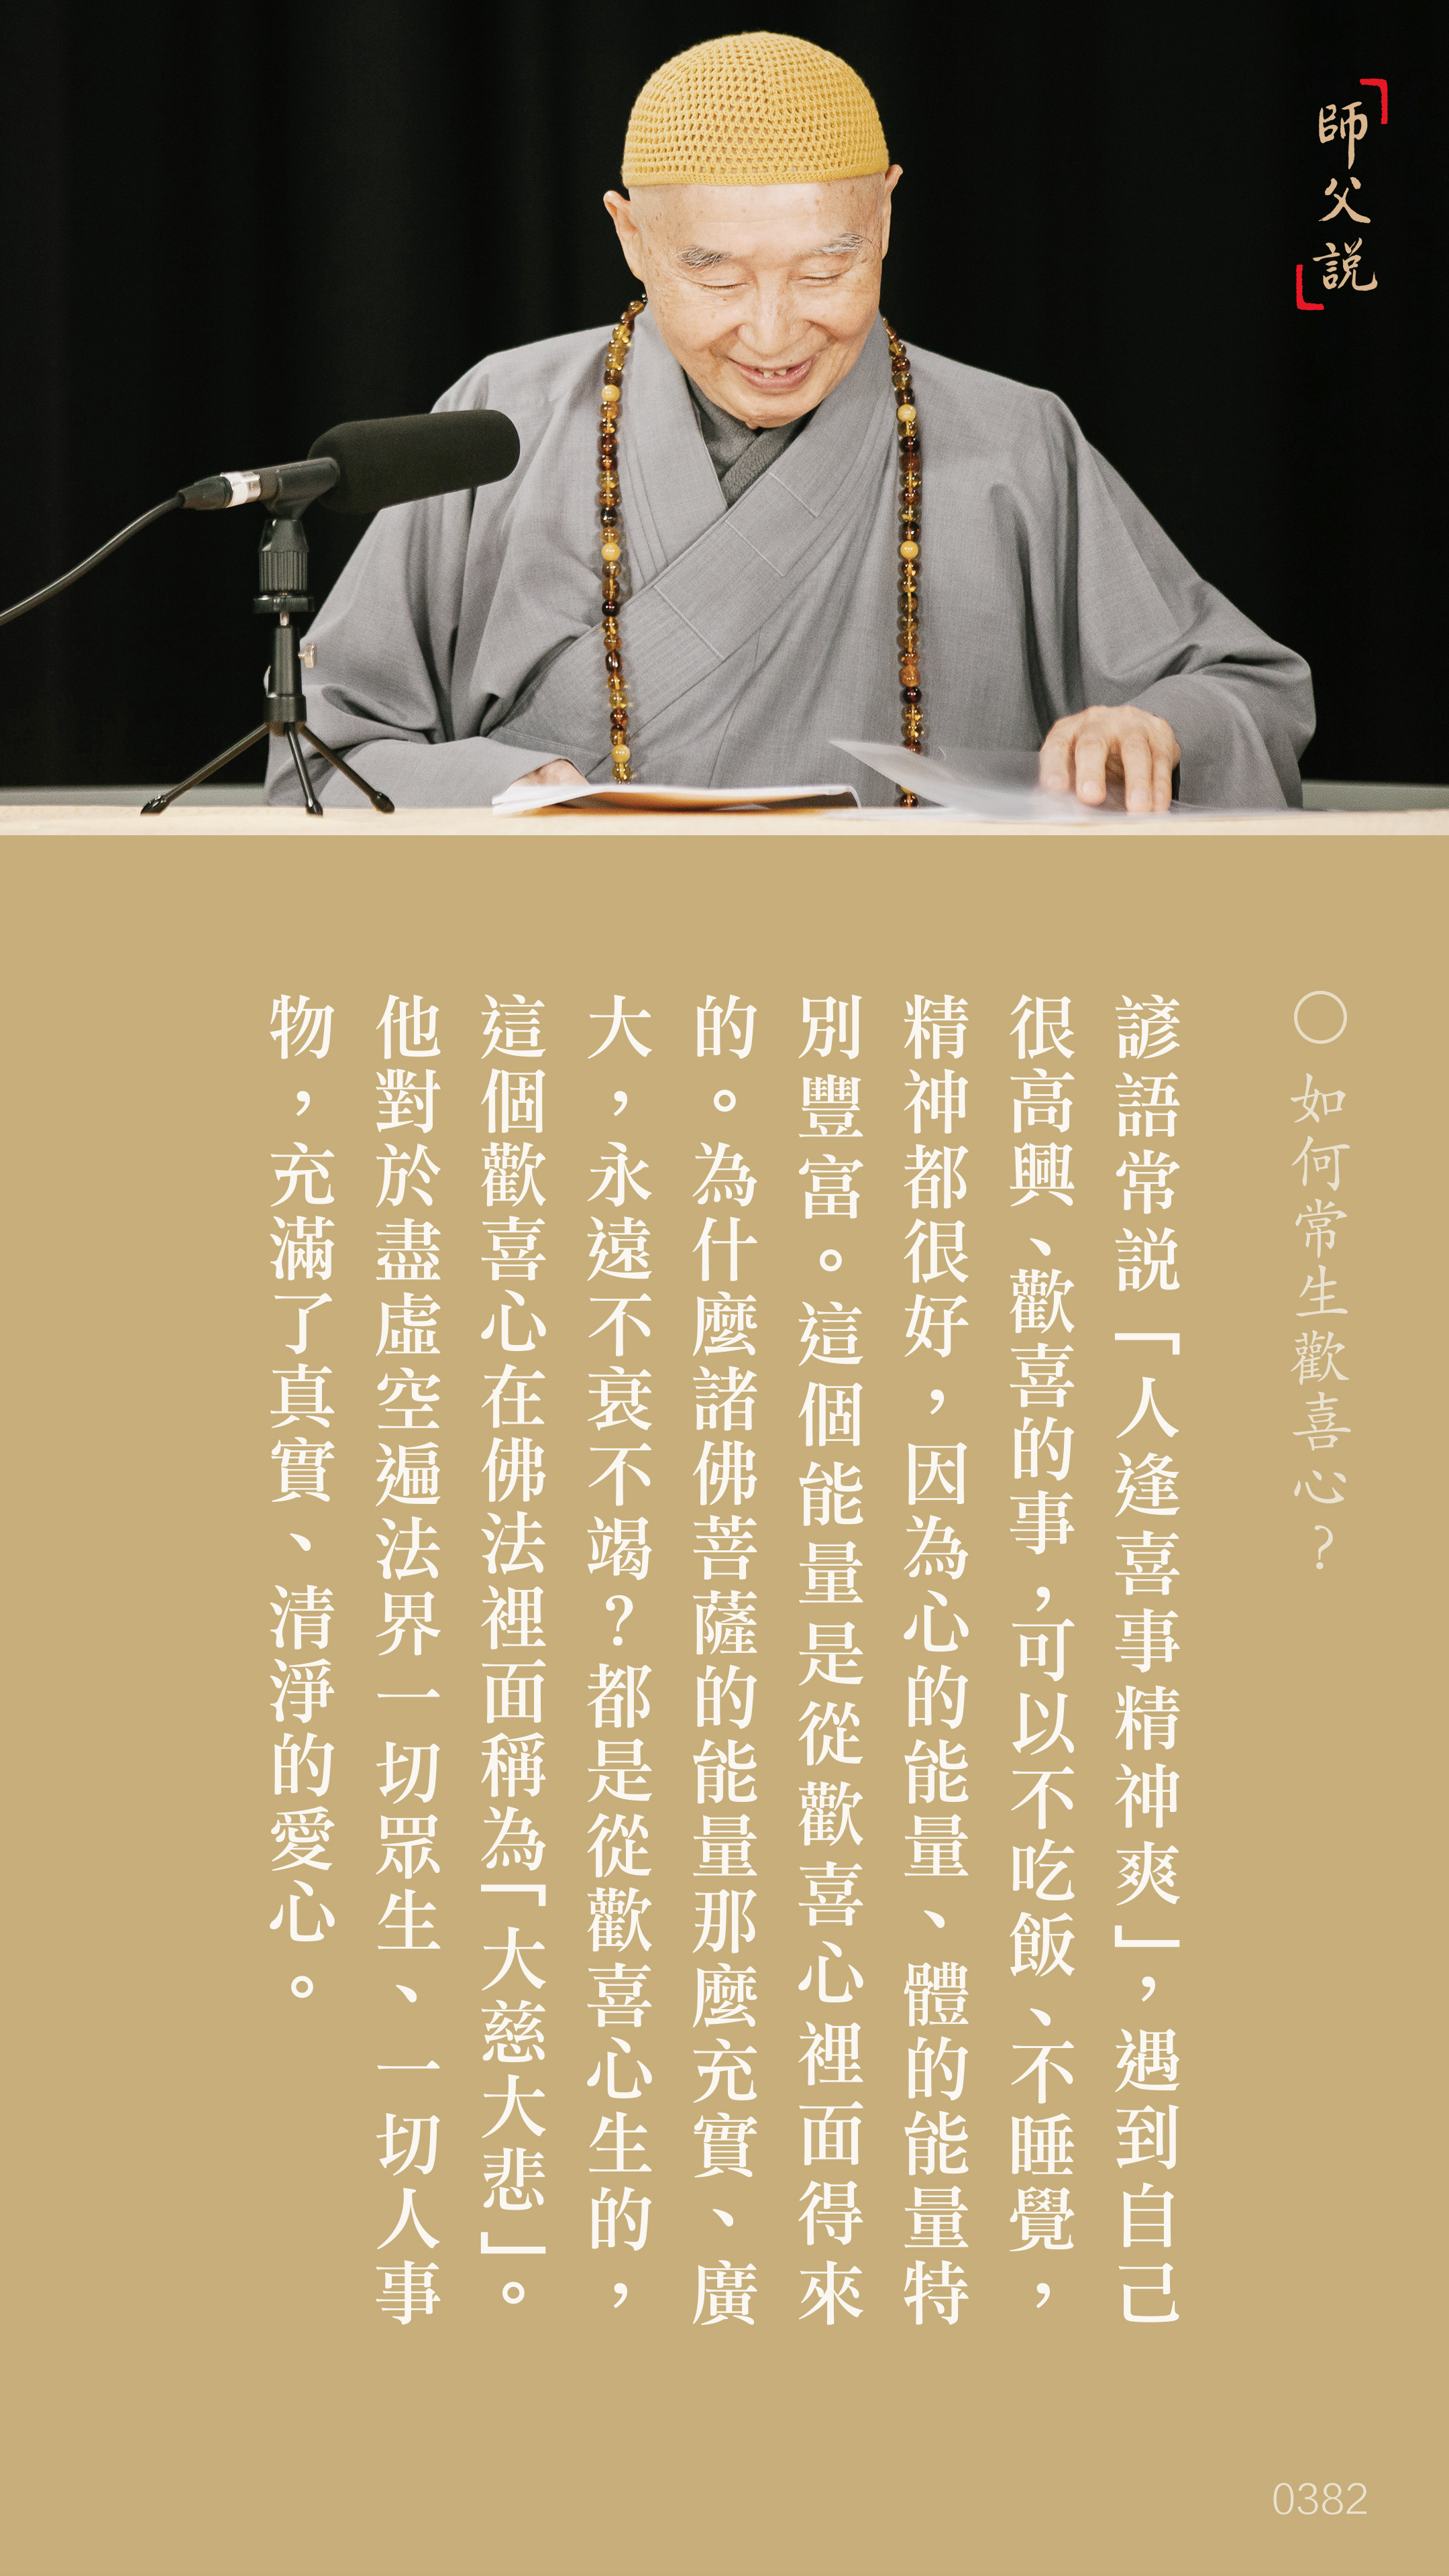 「師父説」
〇如何常生歡喜心？
諺語常説「人逢喜事精神爽」，遇到自己
很高興、歡喜的事，可以不吃飯、不睡覺，
精神都很好，因為心的能量、體的能量特
別豐富。這個能量是從歡喜心裡面得來
的。為什麼諸佛菩薩的能量那麼充實、廣
大，永遠不衰不竭？都是從歡喜心生的，
這個歡喜心在佛法裡面稱為「大慈大悲」。
他對於盡虛空遍法界一切眾生、一切人事
物，充滿了真實、清淨的愛心。
0382